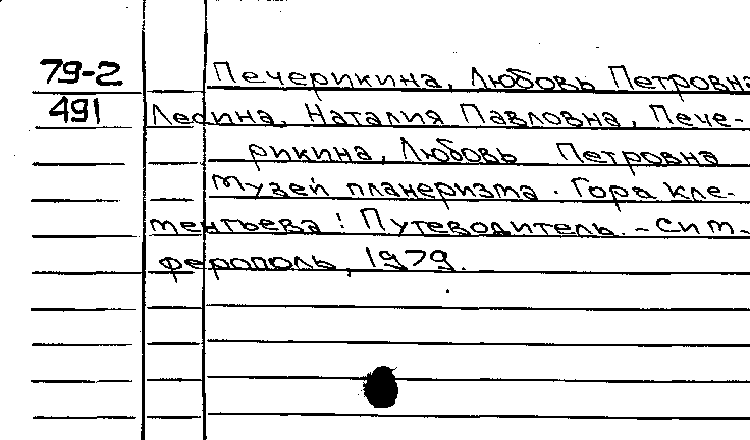 79-2 Печерикина, Любовь Петровна
491 Лесина, Наталия Павловна, Пече-
рикина, Любовь Петровна
Музей планеризма. Гора Кле-
ментьева: Путеводитель. - Сим-
ферополь, 1979.